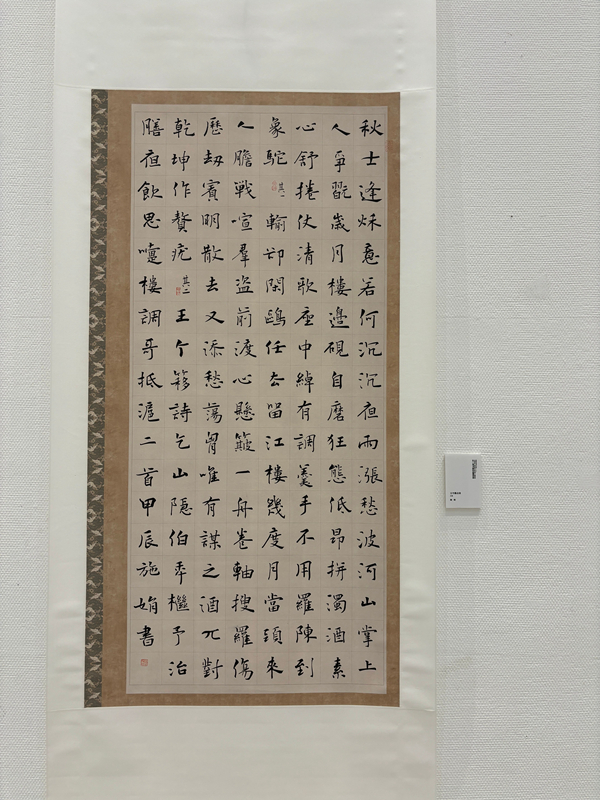 秋士逢秌意若何沉沉亱雨漲愁波河山掌上
人爭翫歲月樓邊硯自磨狂態低昂拚濁酒素
心舒捲仗清歌座中綽有調羹手不用羅陳到
象駝其一輸卻閑鷗任去留江樓幾度月當頭來
人膽戰喧羣盜前渡心懸簸一舟卷軸搜羅傷
歷劫賓明散去又添愁蕩胷唯有謀之酒兀對
乾坤作贅疣其二王个簃詩乞山隱伯予治
膳亱飲思嚏樓調哥抵滬二首甲辰施娟書